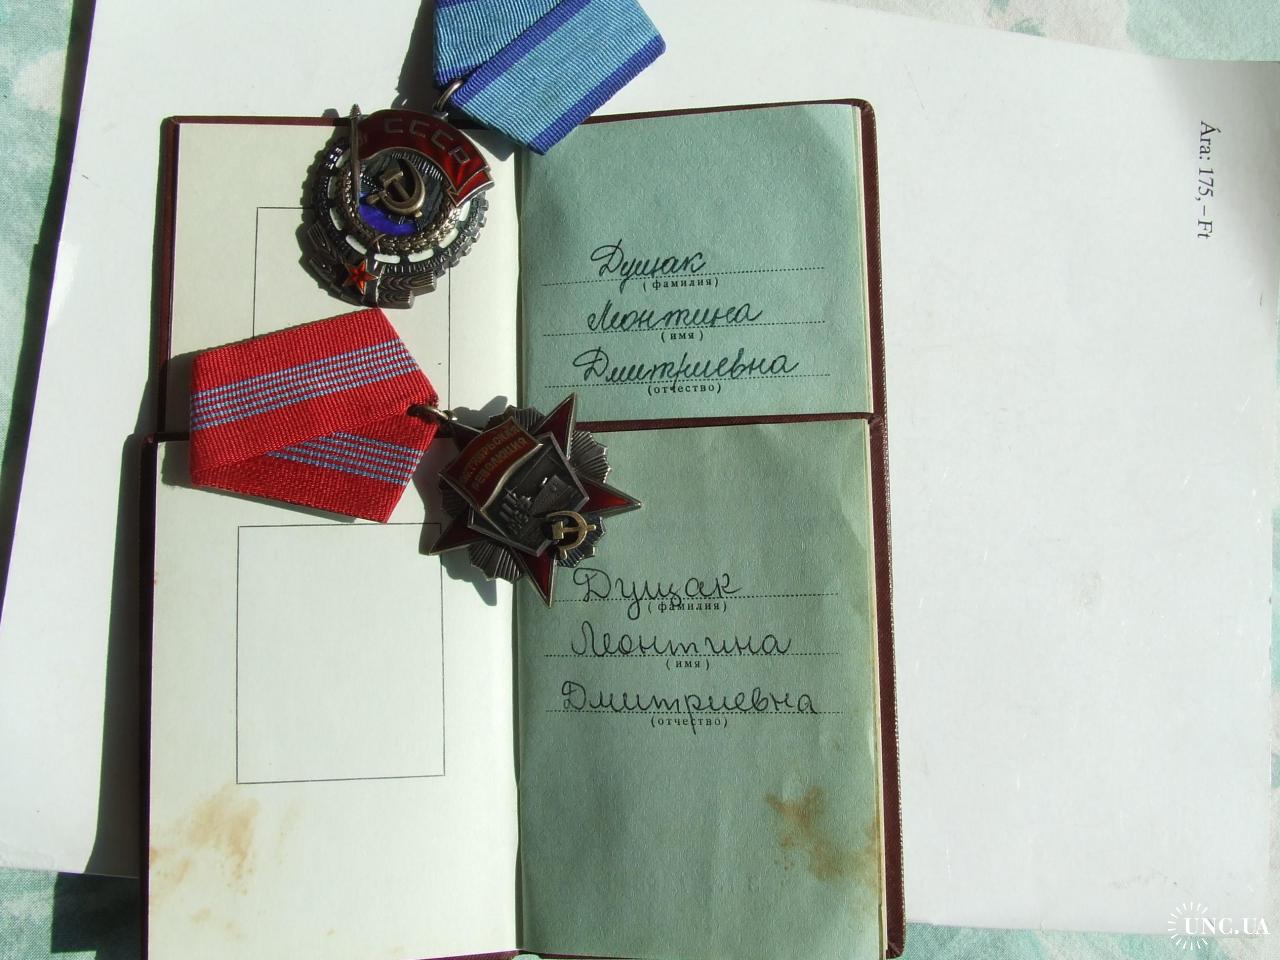 СССР
Ára: 175,-Ft
Дущак
(фамилия)
Леонтина
(имя)
Дмитриевна
(отчество)
ОКТЯБРЬСКАЯ
РЕВОЛЮЦИЯ
Дущак
(фамилия)
Леонтина
(имя)
Дмитриевна
(отчество)
UNC.UA